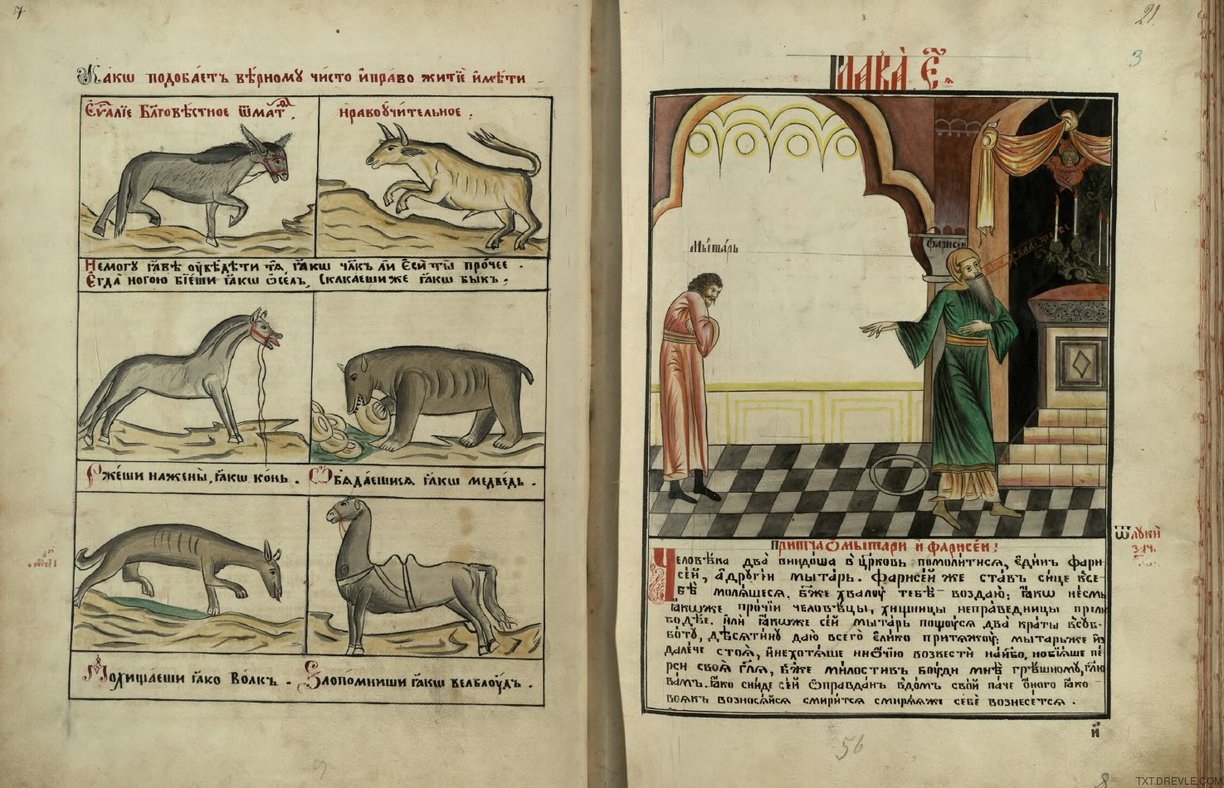 Какѡ подобаетъ вѣрному чисто и право житїе имѣти
Еѵ҃лїе Бл҃говѣстное ѿ мат
нравоꙋчительное.
Немогꙋ гавѣ ꙋвѣдѣти тѧ, гакѡ чл҃къ ли еси ты прочее.
Егда ногою бїеши гакѡ ѻселъ, скакаеши же гакѡ быкъ.
Ржеши на жены, гакѡ конь.
Ѡбѧдаешисѧ гакѡ медведь.
Похищаеши гако волкъ.
Злопомниши гакѡ велблоудъ.
Глава є҃
Мытарь
Фарисей
Притча ѡ мытари и фарисеи:
Человѣка два внидоша в церковь помолитисѧ, единъ фари
сей, а дрꙋгїй мытарь. фарисей же ставъ сице в се
бѣ молѧшесѧ. бж҃е хвалꙋ тебѣ воздаю: гакѡ несмь
гакѡже прочїи человѣцы, хищницы неправедницы прелю
бодѣе. или гакѡже сей мытарь пощꙋсѧ два краты в сꙋб
вотꙋ, дѣсѧтинꙋ даю всего елико притѧжꙋ: мытарь же из
далече стоѧ, и нехотѧше ни ѻчїю возвести на нб҃о, но бїѧше пе
рси своѧ гл҃ѧ, бж҃е милостивъ бꙋди мнѣ грѣшномꙋ, гл҃ю
вамъ. гако сниде сей ѡправданъ в домъ свой паче ѻного гако
всѧкъ возносѧйсѧ смиритсѧ смирѧѧже себе вознесетсѧ.
ѿ лꙋки
зач.
и҃
21
3
56
TXT.DREVLE.COM